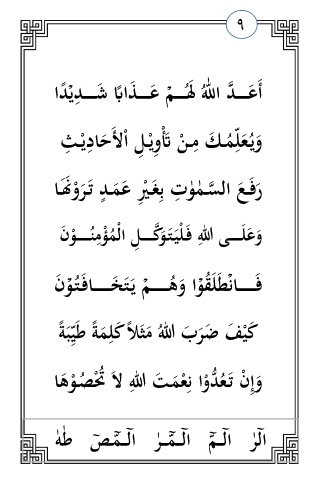 ٩
أَعَدَّ اللهُ لَهُمْ عَذَابًا شَدِيْدًا
وَيُعَلِّمُكَ مِنْ تَأْوِيْلِ اْلأَحَادِيْثِ
رَفَعَ السَّمٰوٰتِ بِغَيْرِ عَمَدٍ تَرَوْنَهَا
وَعَلَى اللهِ فَلْيَتَوَكَّلِ الْمُؤْمِنُوْنَ
فَانْطَلَقُوْا وَهُمْ يَتَخَافَتُوْنَ
كَيْفَ ضَرَبَ اللهُ مَثَلاً كَلِمَةً طَيِّبَةً
وَإِنْ تَعُدُّوْا نِعْمَتَ اللهِ لاَ تُحْصُوْهَا
الٓرٰ الٓمّٓ الٓمّٓرٰ الٓمّٓصٓ طٰهٰ